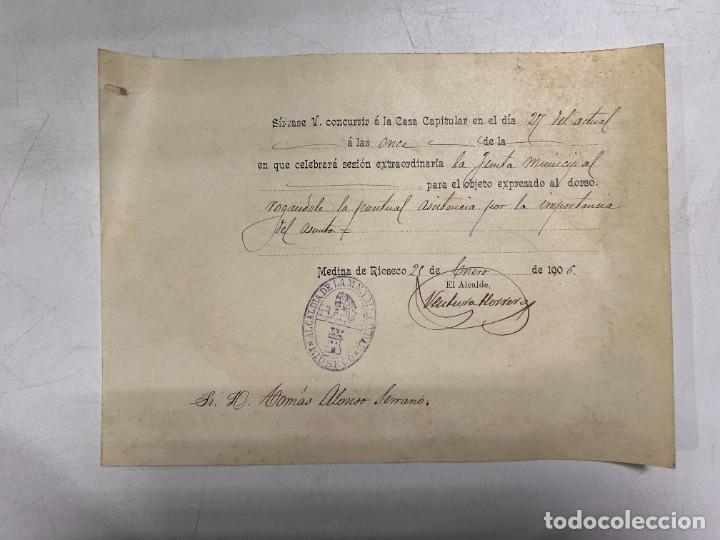 Sírvase V. concurrir á la Casa Capitular en el día 27 del actual
á las once de la
en que celebrará sesión extraordinaria la Junta Municipal
para el objeto expresado al dorso.
rogandole la puntual asistencia por la importancia
del asunto
Medina de Rioseco de Enero de 1906.
El Alcalde,
Ventura Herrero
ALCALDÍA DE LA M.N.Y M.L. RIOSECO
Sr. D. Tomás Alonso Serrano.
todocoleccion.net